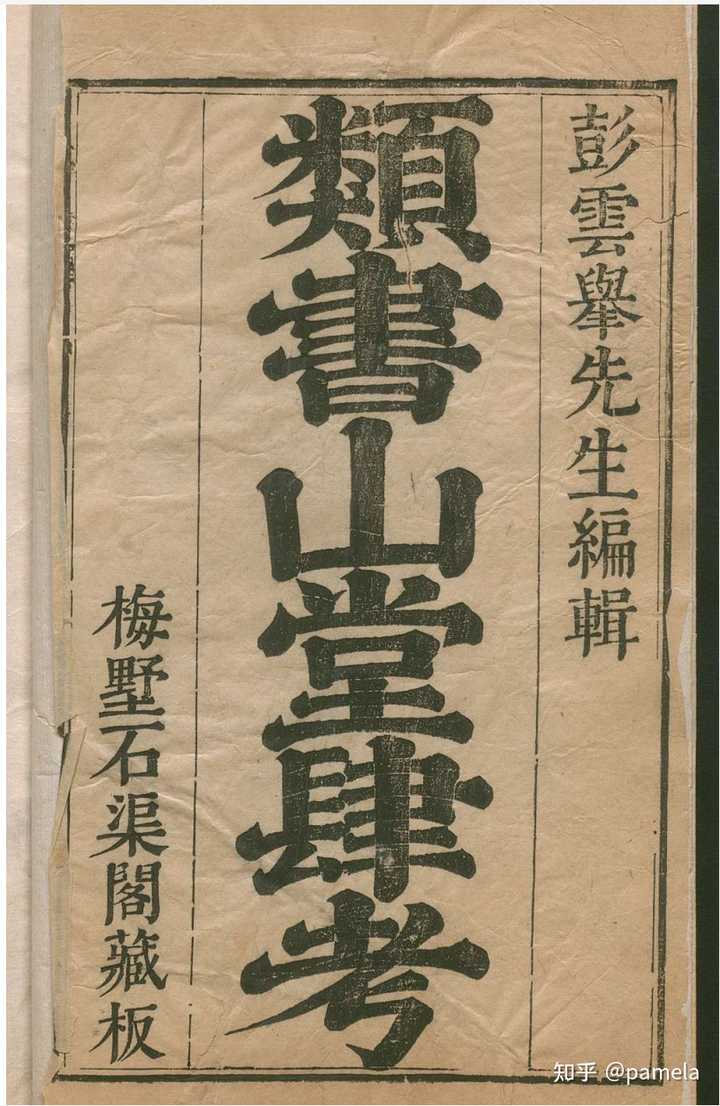 彭雲舉先生編輯
類書山堂肆考
梅墅石渠閣藏板
知乎 @pamela